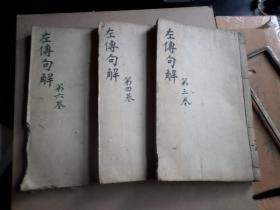 左傳句解
第六卷
左傳句解
第四卷
左傳句解
第三卷